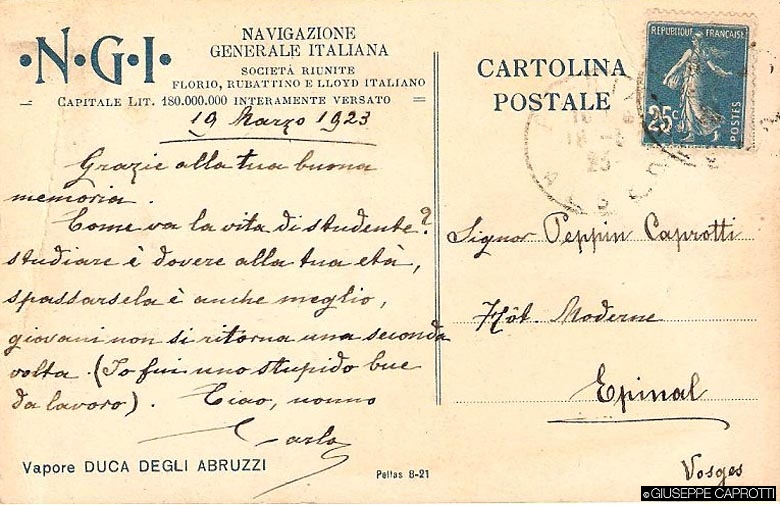 ·N·G·I·
NAVIGAZIONE
GENERALE ITALIANA
SOCIETÀ RIUNITE
FLORIO, RUBATTINO E LLOYD ITALIANO
CAPITALE LIT. 180.000.000 INTERAMENTE VERSATO
19 Marzo 1923
Grazie alla tua buona
memoria.
Come va la vita di studente?
studiare è dovere alla tua età,
spassarsela è anche meglio,
giovani non si ritorna una seconda
volta. (Io fui uno stupido bue
da lavoro). Ciao, nonno
Carlo
Vapore DUCA DEGLI ABRUZZI
Pellas 8-21
CARTOLINA
POSTALE
REPUBLIQUE FRANÇAISE
25c
POSTES
Signor Peppin Caprotti
Hôt. Moderne
Epinal
Vosges
©GIUSEPPE CAPROTTI